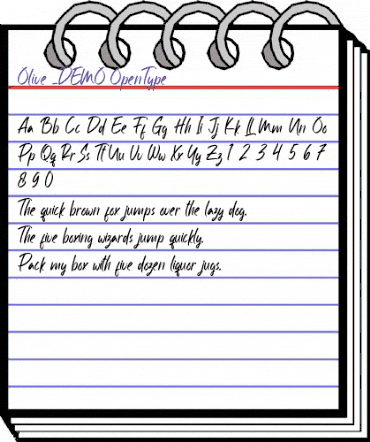 Olive _DEMO OpenType
Aa Bb Cc Dd Ee Ff Gg Hh Ii Jj Kk Ll Mm Nn Oo
Pp Qq Rr Ss Tt Uu Vv Ww Xx Yy Zz 1 2 3 4 5 6 7
8 9 0
The quick brown fox jumps over the lazy dog.
The five boxing wizards jump quickly.
Pack my box with five dozen liquor jugs.